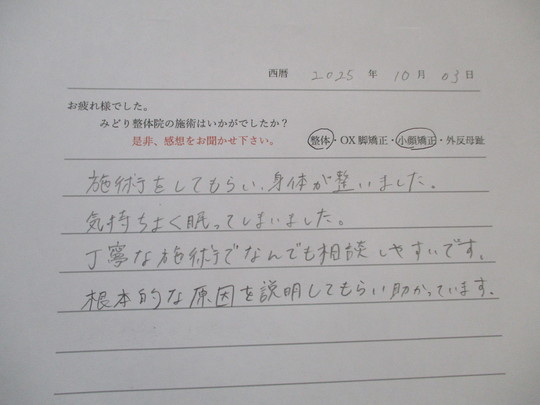 西暦 2025 年 10 月 03 日
お疲れ様でした。
みどり整体院の施術はいかがでしたか?
是非、感想をお聞かせ下さい。 整体・OX脚矯正・小顔矯正・外反母趾
施術をしてもらい、身体が整いました。
気持ちよく眠ってしまいました。
丁寧な施術でなんでも相談しやすいです。
根本的な原因を説明してもらい助かっています。